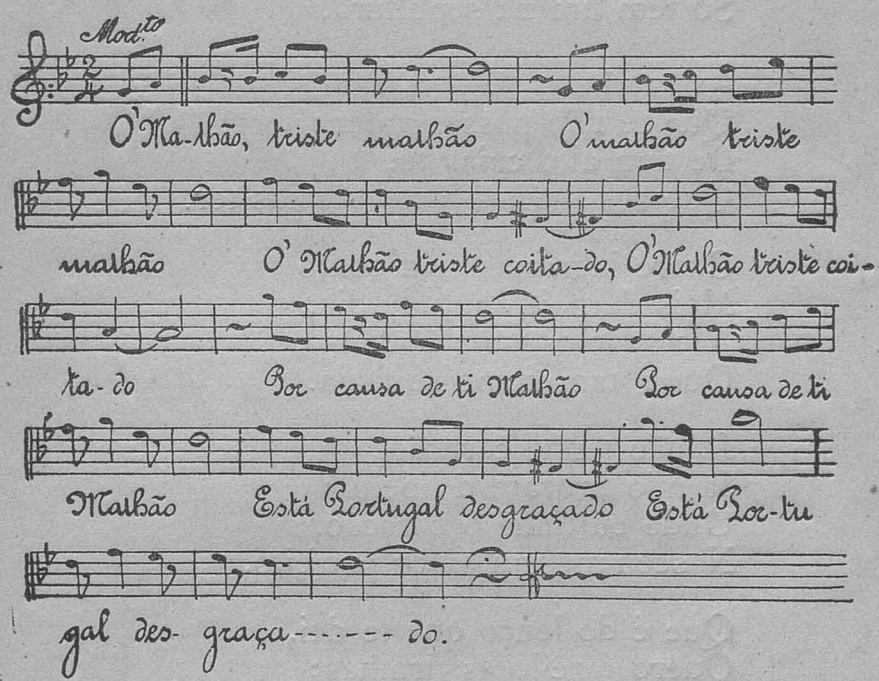 Mod.to
O' Ma-lhão, triste malhão O' malhão triste
malhão O' Malhão triste coita-do, O' Malhão triste coi-
ta-do Por causa de ti Malhão Por causa de ti
Malhão Está Portugal desgraçado Está Por-tu
gal des- graça------- do.